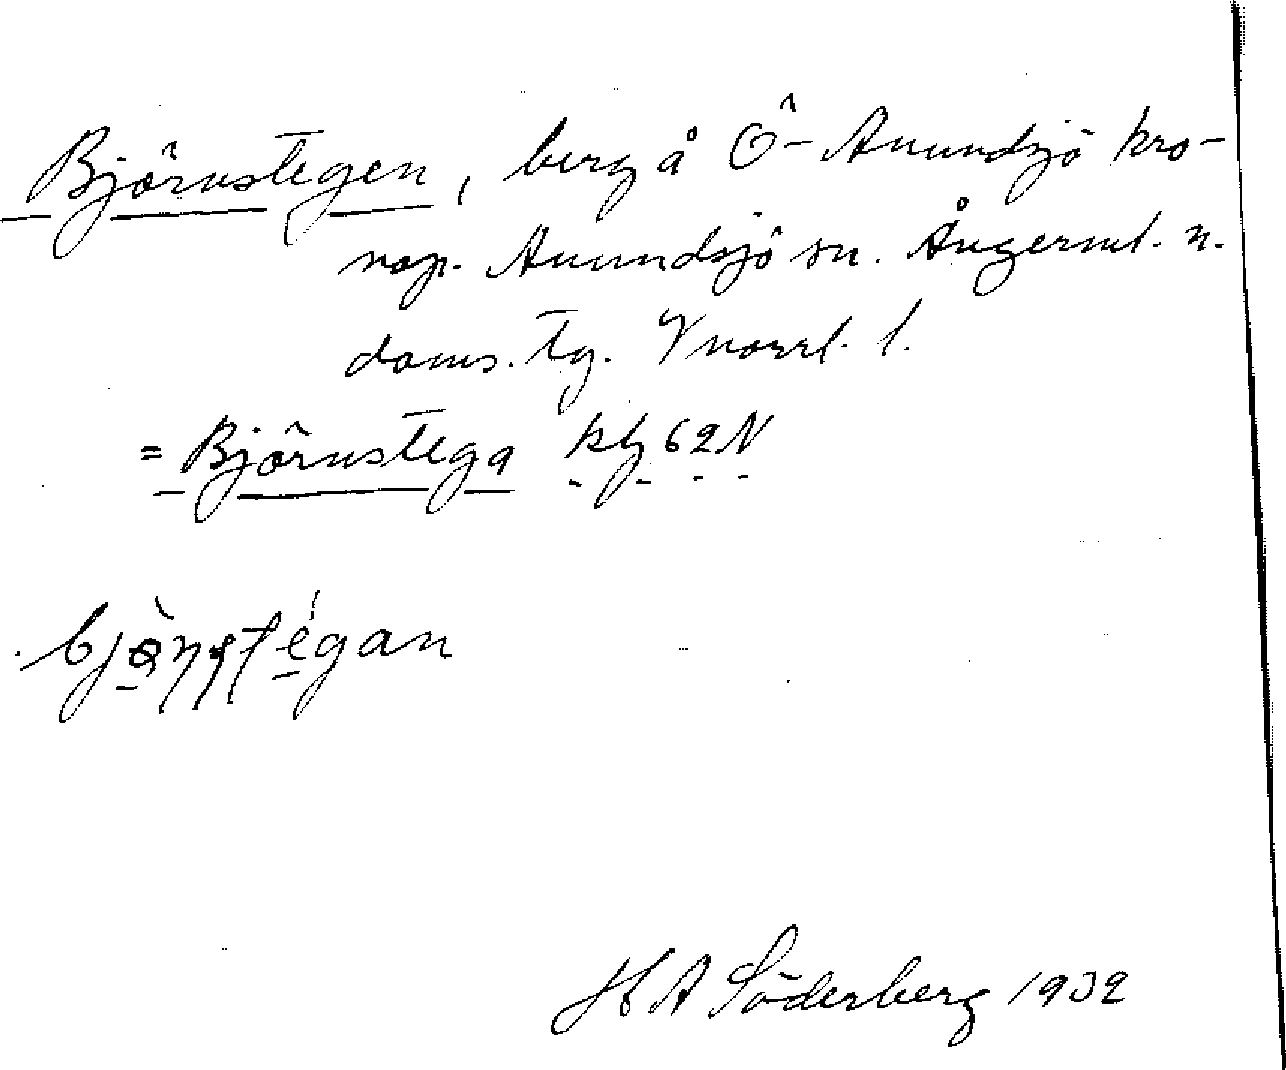 Björnstegen, berg å Ö-Anundsjö kro-
nop. Anundsjö sn. Ångerml. n.
doms. tg. Vnorrl. l.
= Björnstega kbl 62 N
H A Söderberg 1932